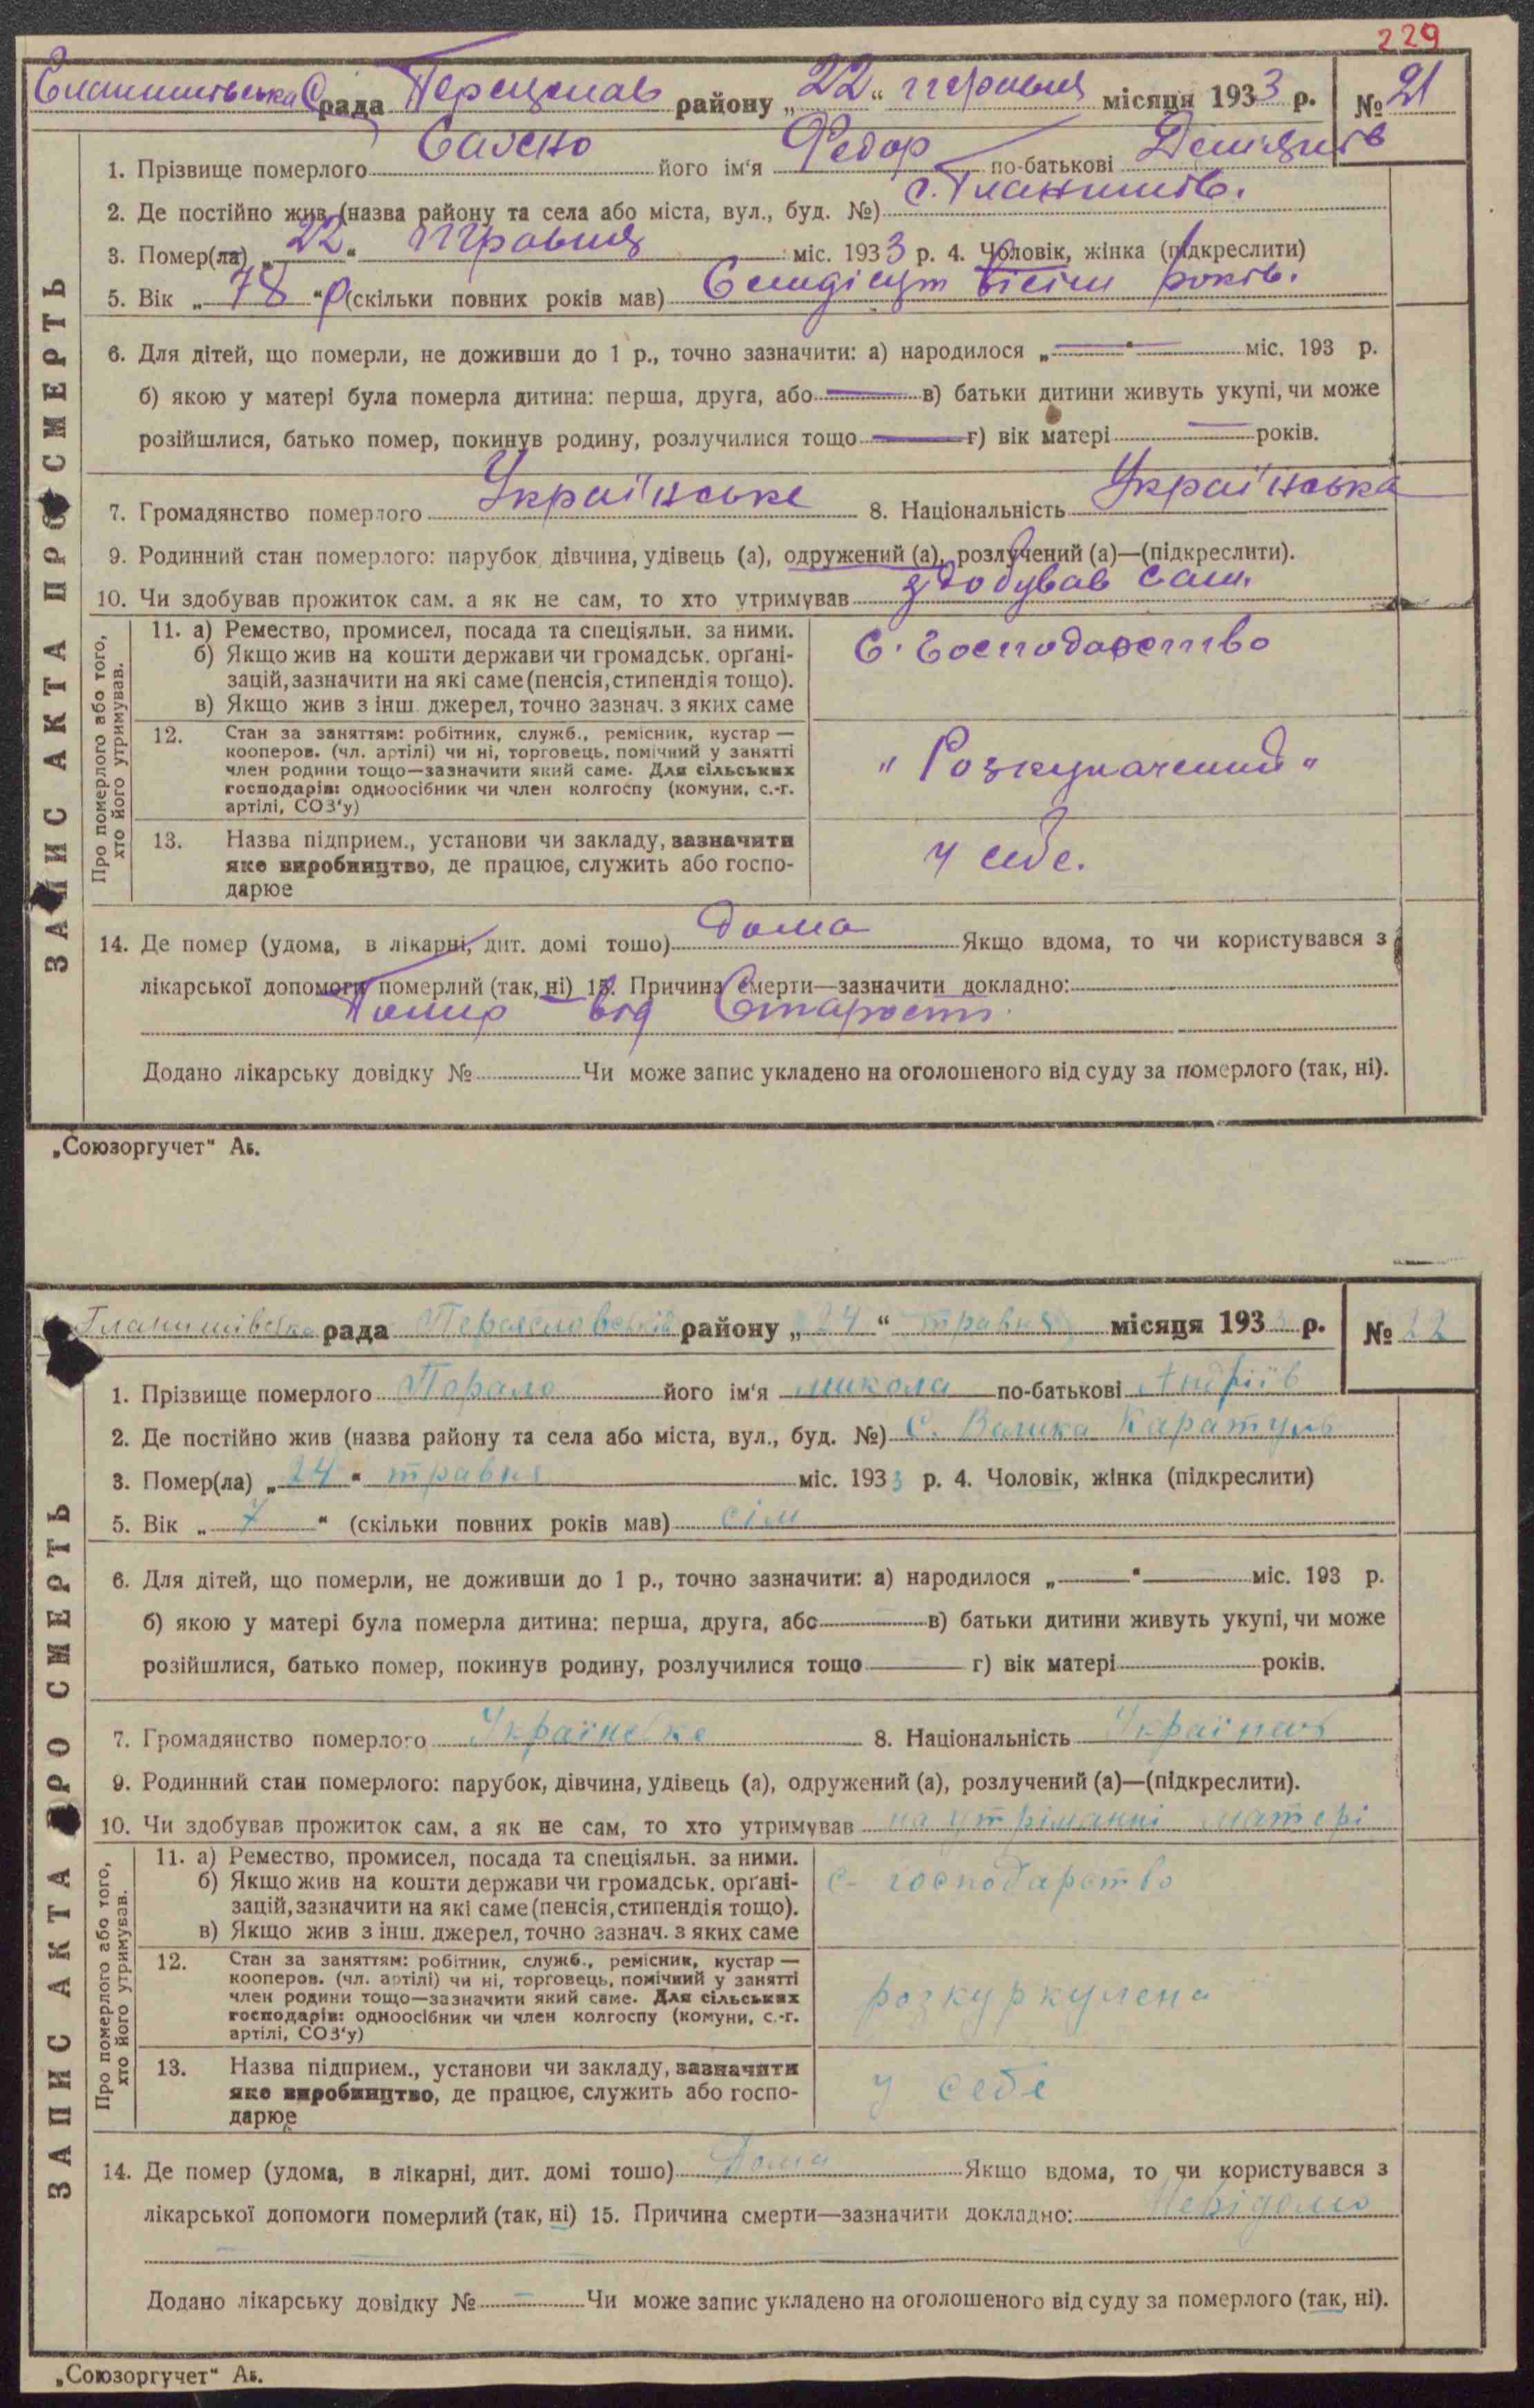 229
рада Переяслав району „22“ травня місяця 1933 р. № 21
ЗАПИС АКТА ПРО СМЕРТЬ
1. Прізвище померлого Савено його ім'я Федор по-батькові
2. Де постійно жив (назва району та села або міста, вул., буд. №) с. Гланишів.
3. Помер(ла) „22“ травня міс. 1933 р. 4. Чоловік, жінка (підкреслити)
5. Вік „78“ р (скільки повних років мав) Семдісят вісім років.
6. Для дітей, що померли, не доживши до 1 р., точно зазначити: а) народилося „—“ — міс. 193 р.
б) якою у матері була померла дитина: перша, друга, або — в) батьки дитини живуть укупі, чи може
розійшлися, батько помер, покинув родину, розлучилися тощо — г) вік матері — років.
7. Громадянство померлого Українське 8. Національність Українська
9. Родинний стан померлого: парубок, дівчина, удівець (а), одружений (а), розлучений (а)—(підкреслити).
10. Чи здобував прожиток сам, а як не сам, то хто утримував здобував сам.
Про померлого або того, хто його утримував.
11. а) Ремество, промисел, посада та спеціяльн. за ними.
б) Якщо жив на кошти держави чи громадськ. орґані-
зацій, зазначити на які саме (пенсія, стипендія тощо).
в) Якщо жив з інш. джерел, точно зазнач. з яких саме
С. Господарство
12. Стан за заняттям: робітник, служб., ремісник, кустар —
кооперов. (чл. артілі) чи ні, торговець, помічний у занятті
член родини тощо—зазначити який саме. Для сільських
господарів: одноосібник чи член колгоспу (комуни, с.-г.
артілі, СОЗ'у)
" Розкулачений "
13. Назва підприєм., установи чи закладу, зазначити
яке виробництво, де працює, служить або госпо-
дарює
У себе.
14. Де помер (удома, в лікарні, дит. домі тошо) дома Якщо вдома, то чи користувався з
лікарської допомоги померлий (так, ні) 15. Причина смерти—зазначити докладно:
Помер від Старости.
Додано лікарську довідку № Чи може запис укладено на оголошеного від суду за померлого (так, ні).
„Союзоргучет“ Ав.
Гланишівська рада Переясловській району „24“ травня місяця 1933 р. № 22
ЗАПИС АКТА ПРО СМЕРТЬ
1. Прізвище померлого Порало його ім'я микола по-батькові Андріїв
2. Де постійно жив (назва району та села або міста, вул., буд. №) С. Велика Каратуль
3. Помер(ла) „24“ травня міс. 1933 р. 4. Чоловік, жінка (підкреслити)
5. Вік „7“ (скільки повних років мав) сім
6. Для дітей, що померли, не доживши до 1 р., точно зазначити: а) народилося „—“ — міс. 193 р.
б) якою у матері була померла дитина: перша, друга, або в) батьки дитини живуть укупі, чи може
розійшлися, батько помер, покинув родину, розлучилися тощо г) вік матері років.
7. Громадянство померлого Українське 8. Національність
9. Родинний стан померлого: парубок, дівчина, удівець (а), одружений (а), розлучений (а)—(підкреслити).
10. Чи здобував прожиток сам, а як не сам, то хто утримував на утріманні матері
Про померлого або того, хто його утримував.
11. а) Ремество, промисел, посада та спеціяльн. за ними.
б) Якщо жив на кошти держави чи громадськ. орґані-
зацій, зазначити на які саме (пенсія, стипендія тощо).
в) Якщо жив з інш. джерел, точно зазнач. з яких саме
с- господарство
12. Стан за заняттям: робітник, служб., ремісник, кустар —
кооперов. (чл. артілі) чи ні, торговець, помічний у занятті
член родини тощо—зазначити який саме. Для сільських
господарів: одноосібник чи член колгоспу (комуни, с.-г.
артілі, СОЗ'у)
розкуркулена
13. Назва підприєм., установи чи закладу, зазначити
яке виробництво, де працює, служить або госпо-
дарює
у себе
14. Де помер (удома, в лікарні, дит. домі тошо) Дома Якщо вдома, то чи користувався з
лікарської допомоги померлий (так, ні) 15. Причина смерти—зазначити докладно: Невідомо
Додано лікарську довідку № — Чи може запис укладено на оголошеного від суду за померлого (так, ні).
„Союзоргучет“ Ав.